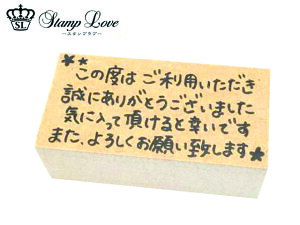 SL
Stamp Love
～スタンプラブ～
★★この度はご利用いただき
誠にありがとうございました
気に入って頂けると幸いです
また、よろしくお願い致します★★